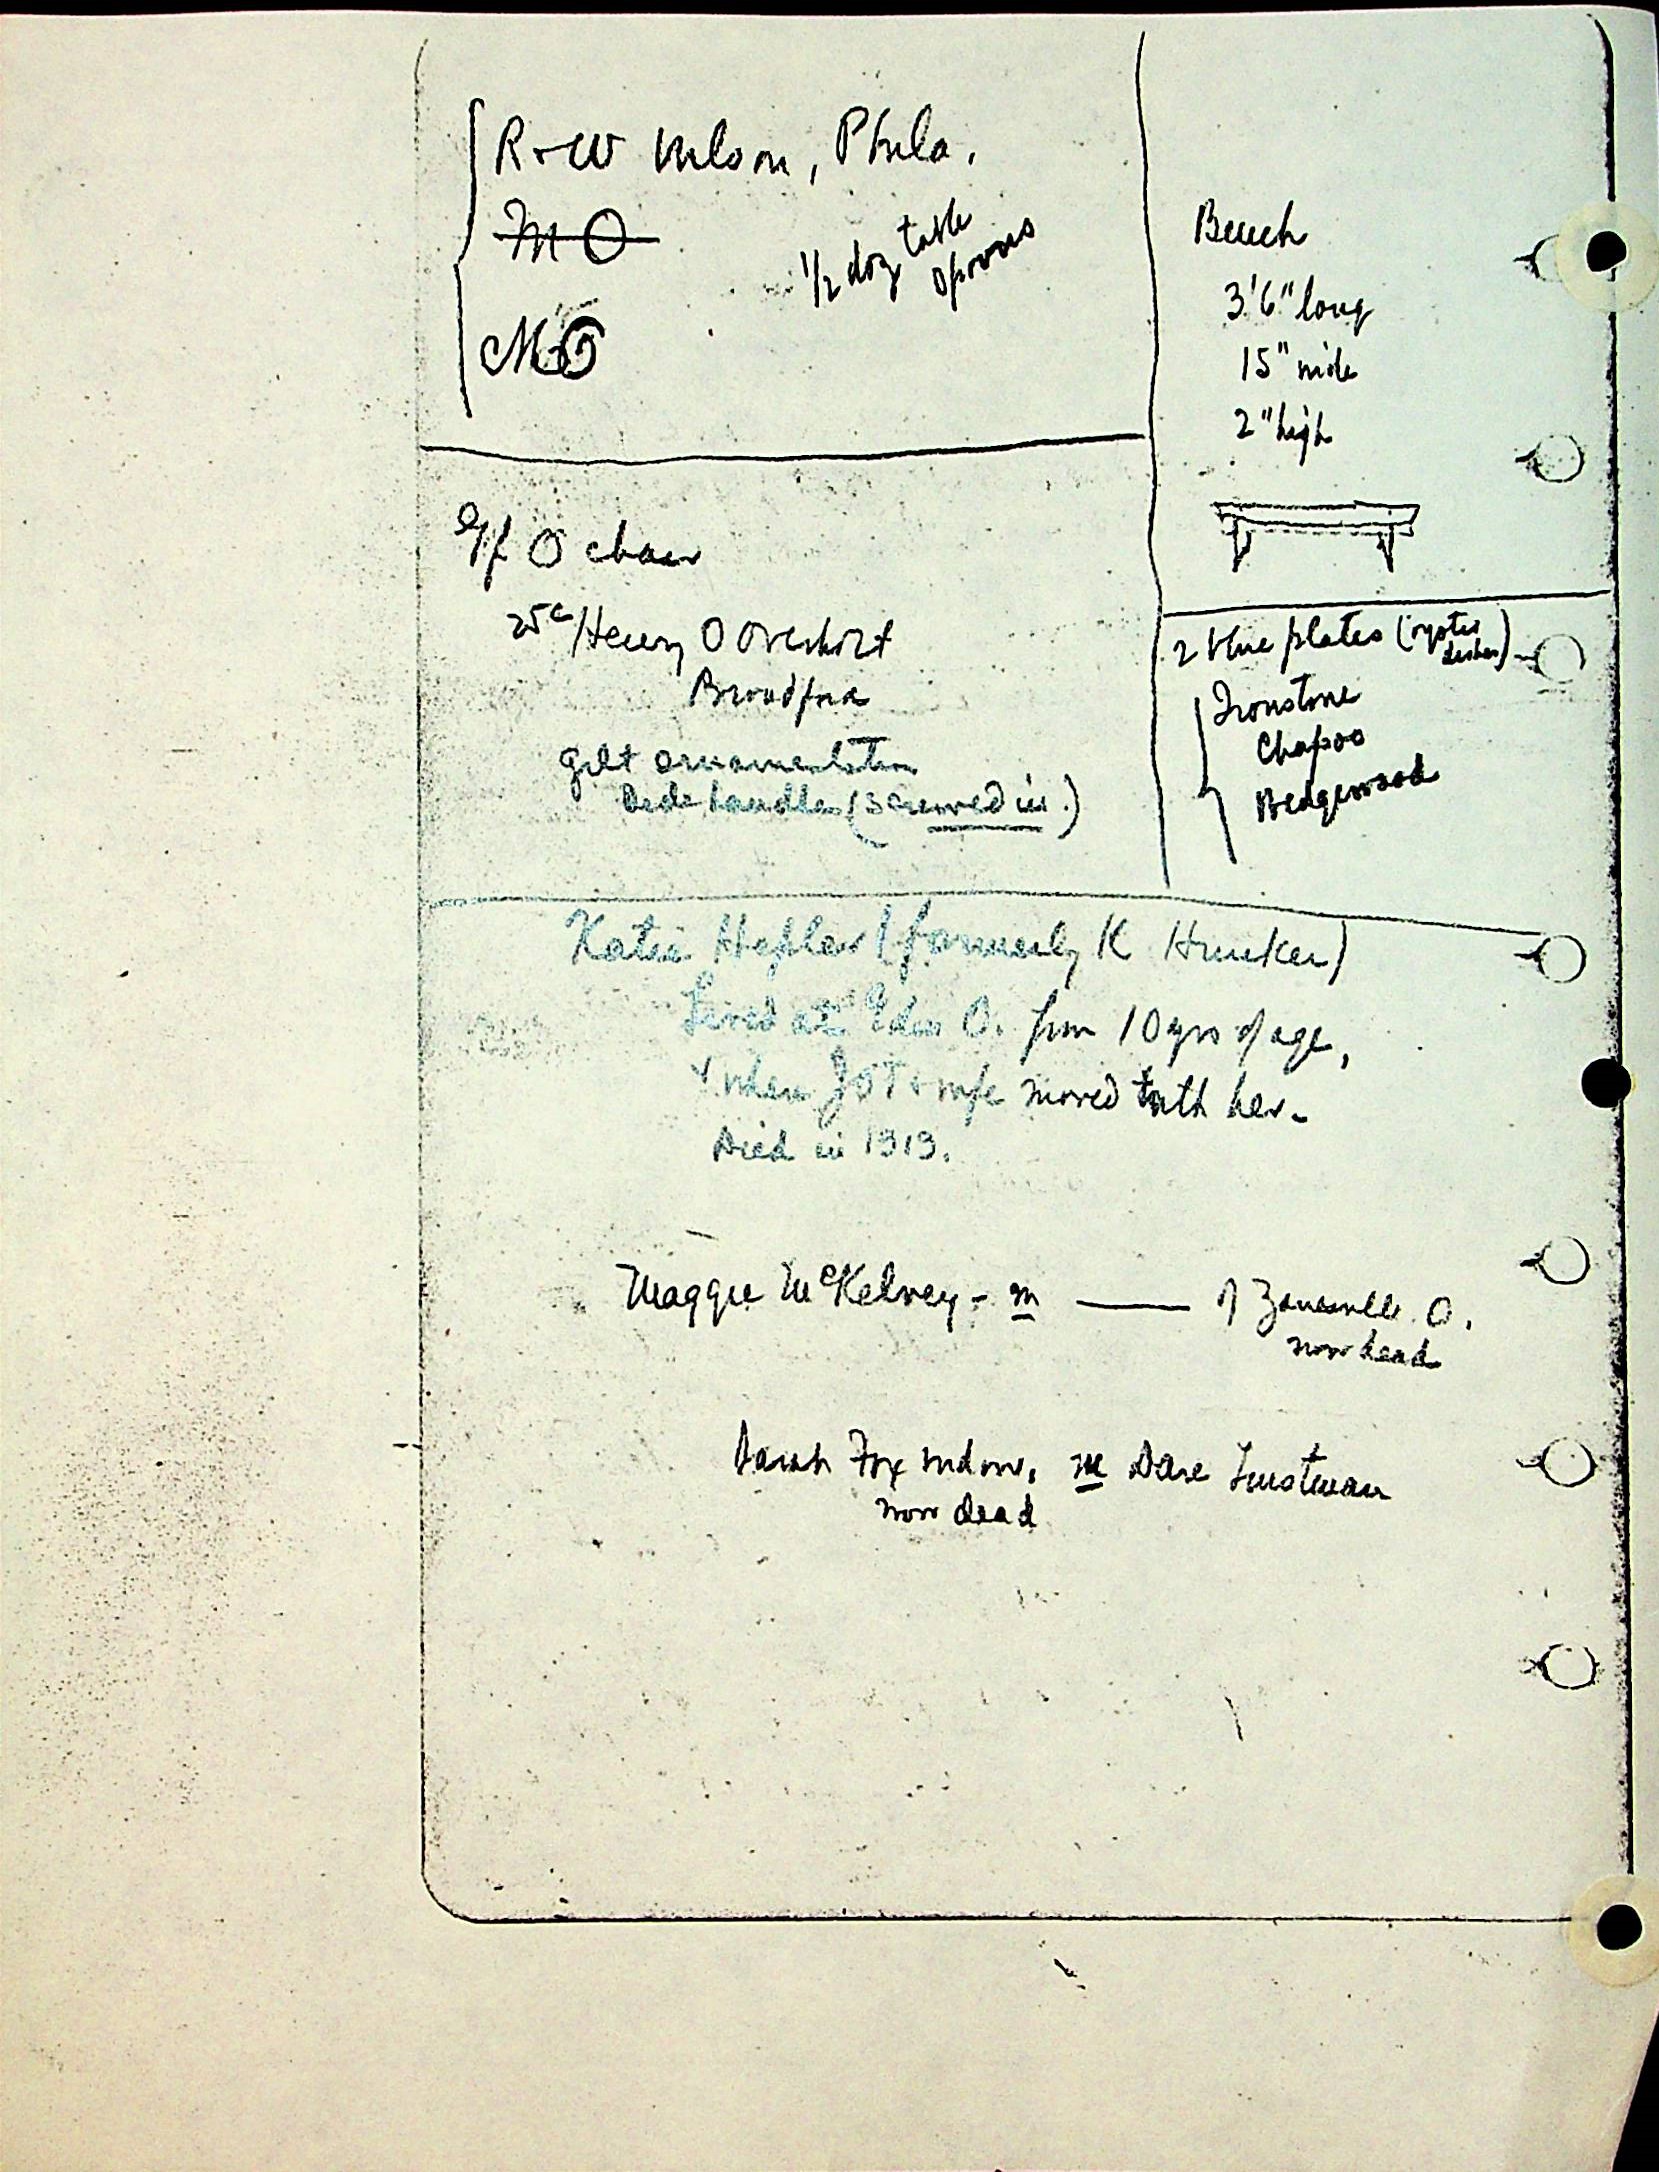 R + W Wilson, Phila.
M O
½ doz table
spoons
MO
Bench
3'6" long
15" wide
2" high
O chair
25c Henry O Overholt
Broadford
gilt ornamentation
Side handles (screwed in.)
2 blue plates (oyster
dishes)
Ironstone
Chapoo
Wedgewood
Katie Hepler (formerly K Hunker)
Lived at O. from 10 yrs of age,
& when JOT & wife moved with her.
Died in 1919.
Maggie McKelvey - m —— of Zanesville. O.
now dead
Sarah Fox widow, m Dave Linsteman
now dead